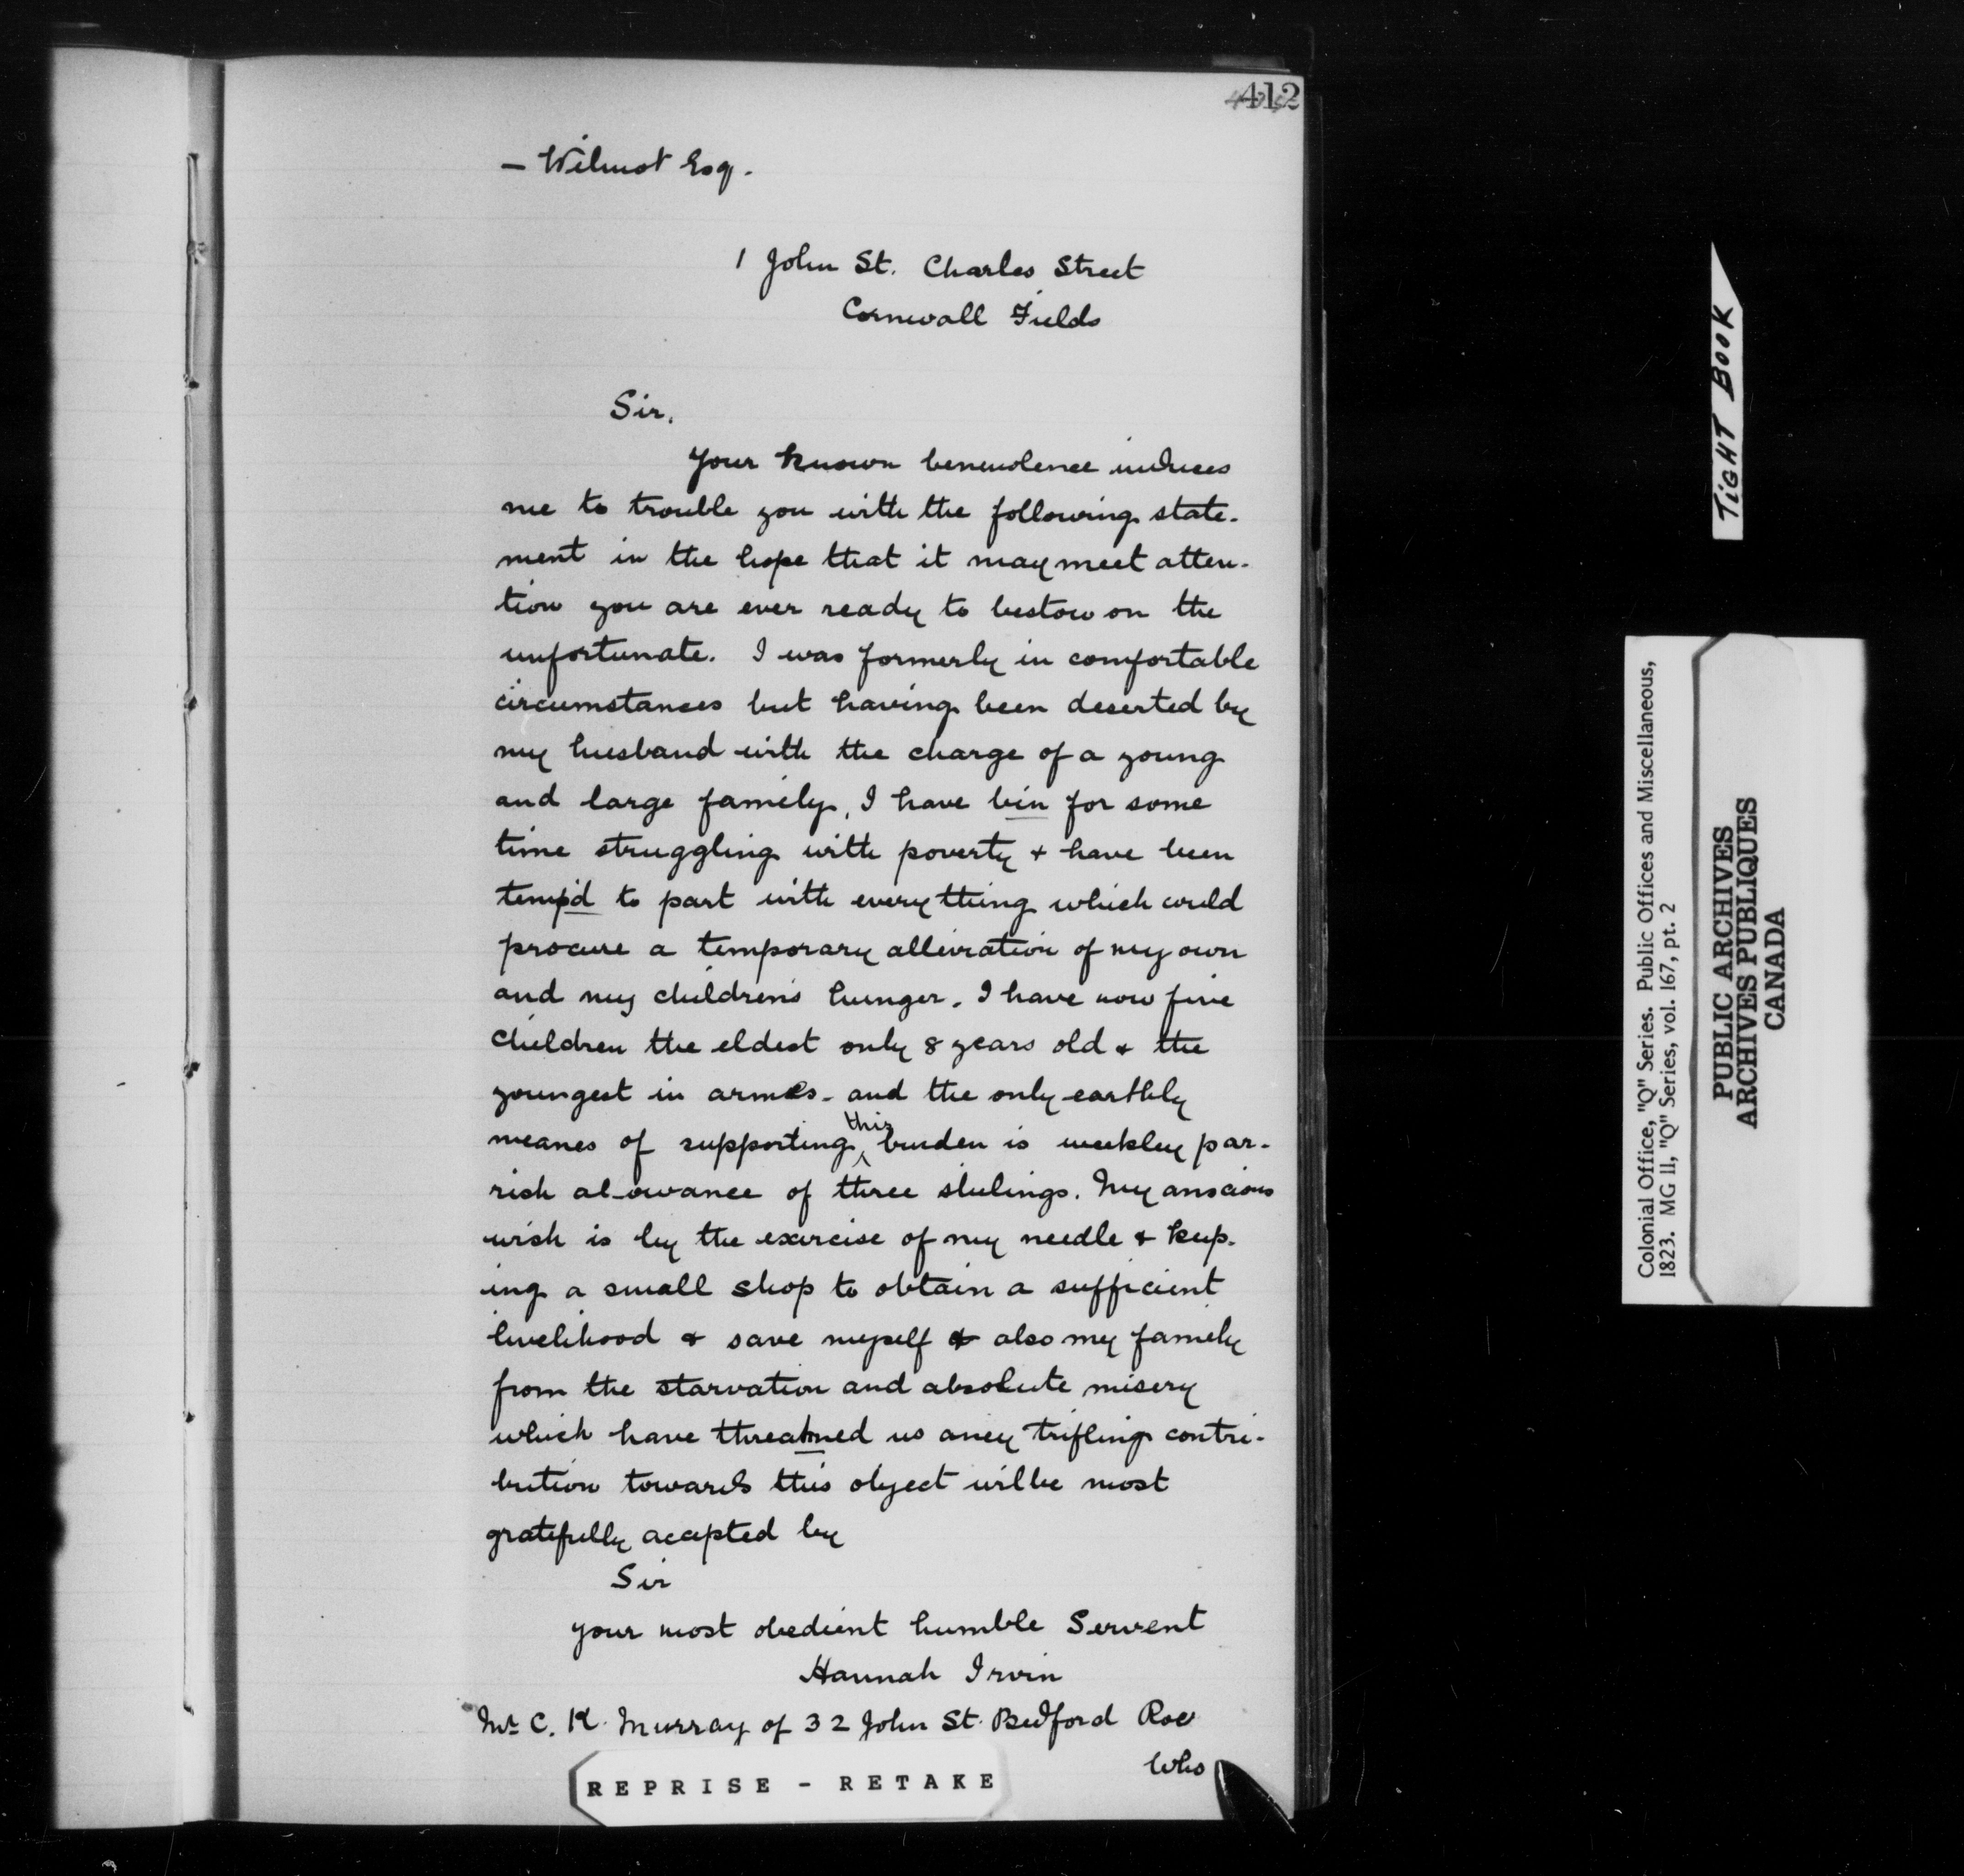 412
— Wilmot Esq.
1 John St. Charles Street
Cornwall Fields
Sir,
Your known benevolence induces
me to trouble you with the following state-
ment in the hope that it may meet atten-
tion you are ever ready to bestow on the
unfortunate. I was formerly in comfortable
circumstances but having been deserted by
my husband with the charge of a young
and large family, I have bin for some
time struggling with poverty + have been
temp'd to part with every thing which could
procure a temporary alleviration of my own
and my children's hunger. I have now five
children the eldest only 8 years old & the
youngest in armes - and the only earthly
meanes of supporting this burden is weekley par-
rish alowance of three shilings. My anscious
wish is by the exercise of my needle & keep-
ing a small shop to obtain a sufficient
livelihood & save myself & also my family
from the starvation and absolute misery
which have threatned us aney trifling contri-
bution towards this object wilbe most
gratefully accepted by
Sir
your most obedient humble Servent
Hannah Irvin
Mr. C. K. Murray of 32 John St. Bedford Roe
Who
REPRISE - RETAKE
TIGHT BOOK
Colonial Office, "Q" Series. Public Offices and Miscellaneous,
1823. MG 11, "Q" Series, vol. 167, pt. 2
PUBLIC ARCHIVES
ARCHIVES PUBLIQUES
CANADA